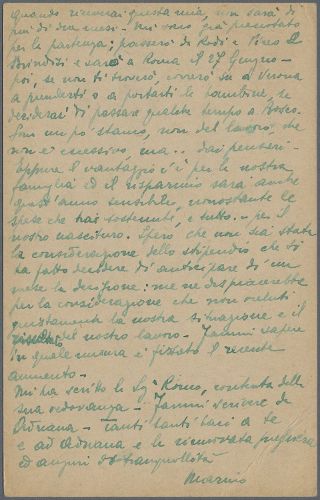 Quando riceverai questa mia, non sarà di
più di due mesi - Mi sono già prenotato
per la partenza; passerò da Rodi e Pireo a
Brindisi e sarò a Roma il 27 Giugno -
poi, se non ti troverò, correrò su a Verona
a prenderti o a portarti le bambine, se
deciderai di passare qualche tempo a Bosco.
Sono un po' stanco, non del lavoro, che
non è eccessivo, ma.. dai pensieri -
Eppure il vantaggio c'è per la nostra
famiglia ed il risparmio sarà anche
quest'anno sensibile, nonostante le
spese che hai sostenute, e tutto - per il
nostro nascituro. Spero che non sia stata
la considerazione dello stipendio che ti
ha fatto decidere di anticipare di un
mese la decisione: me ne dispiacerebbe
per la considerazione che non valuti
giustamente la nostra situazione e il
del nostro lavoro - Fammi sapere
in quale misura è fissato il recente
aumento -
Mi ha scritto la Sig.ra Romo, contenta della
sua vedovanza - Fammi scrivere da
Adriana - Tanti tanti baci a te
e ad Adriana e la rinnovata preghiera
ed auguri di tranquillità
Mario